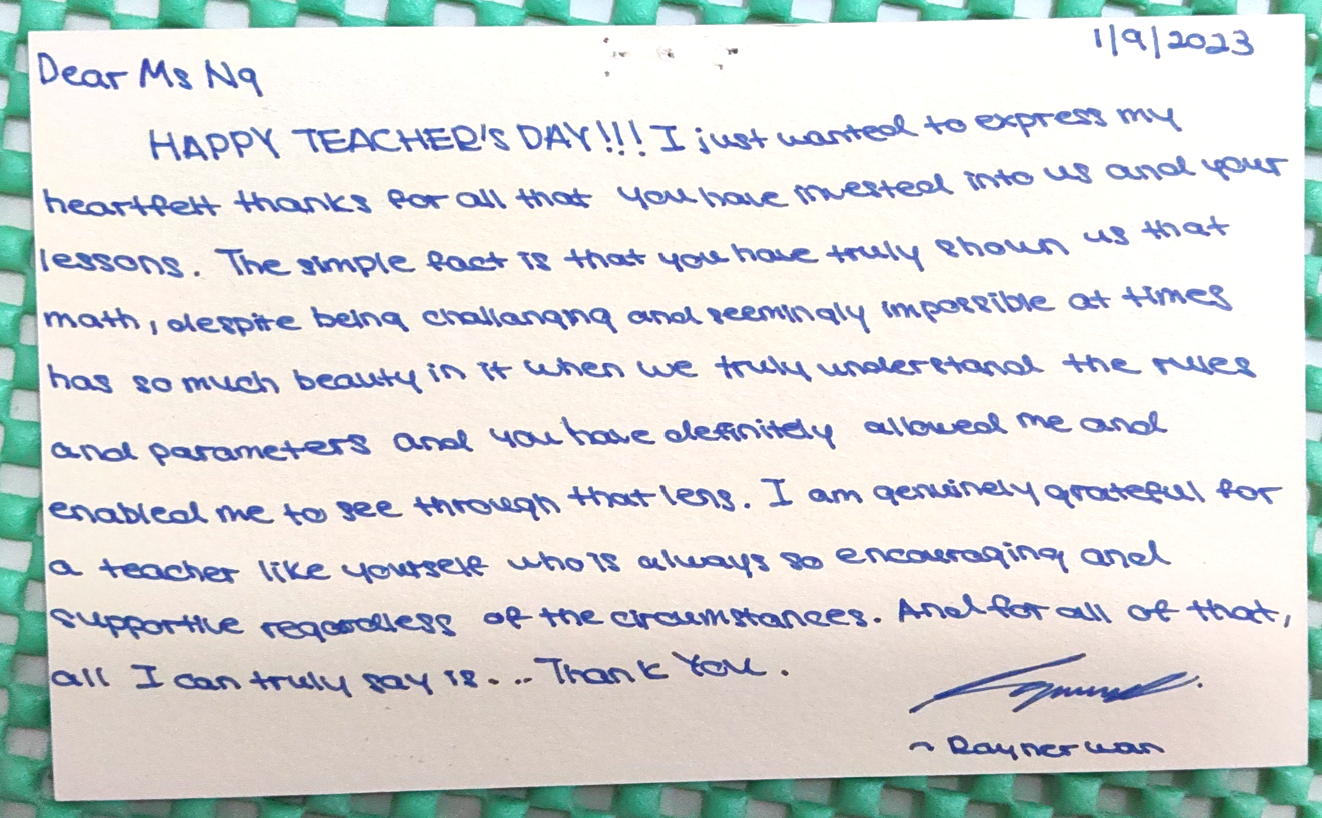 1/9/2023
Dear Ms Ng
HAPPY TEACHER'S DAY!!! I just wanted to express my
heartfelt thanks for all that you have invested into us and your
lessons. The simple fact is that you have truly shown us that
math, despite being challanging and seemingly impossible at times
has so much beauty in it when we truly understand the rules
and parameters and you have definitely allowed me and
enabled me to see through that lens. I am genuinely grateful for
a teacher like yourself who is always so encouraging and
supportive regardless of the circumstances. And for all of that,
all I can truly say is... Thank You.
~ Rayner wan